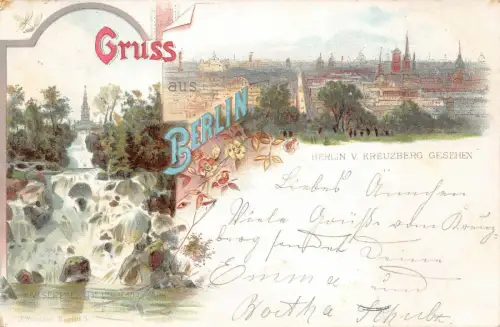 Gruss
aus
BERLIN
BERLIN V. KREUZBERG GESEHEN
Liebes Ännchen
Viele Grüße vom Kreuz
berg sendet Deine
Emma und
Bertha